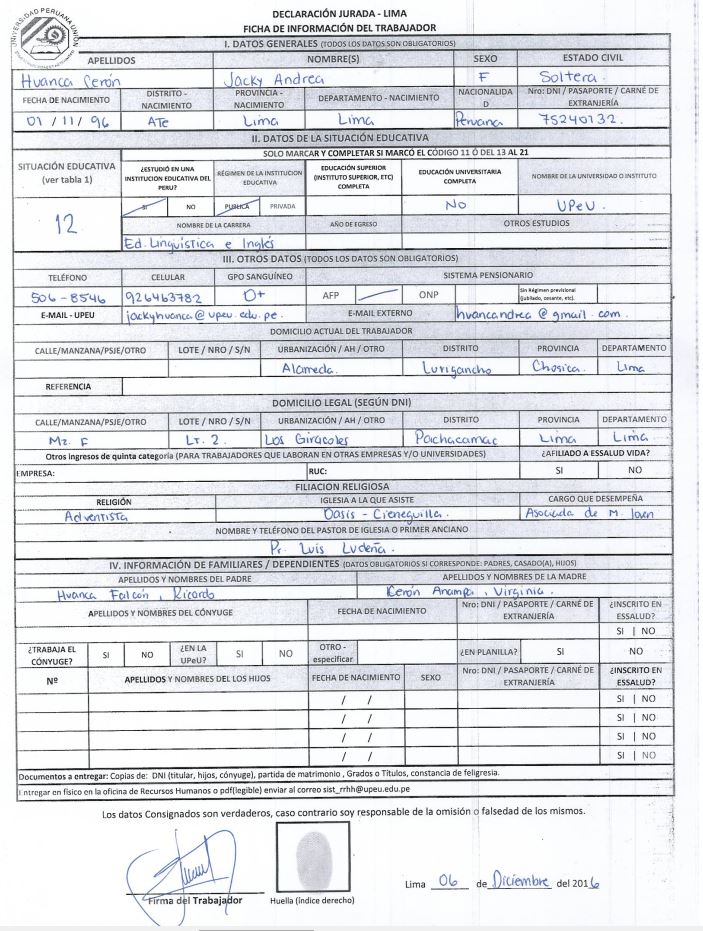 UNIVERSIDAD PERUANA UNIÓN
DECLARACIÓN JURADA - LIMA
FICHA DE INFORMACIÓN DEL TRABAJADOR
I. DATOS GENERALES (TODOS LOS DATOS SON OBLIGATORIOS)
APELLIDOS NOMBRE(S) SEXO ESTADO CIVIL
Huanca Cerón Jacky Andrea F Soltera.
FECHA DE NACIMIENTO DISTRITO - NACIMIENTO PROVINCIA - NACIMIENTO DEPARTAMENTO - NACIMIENTO NACIONALIDAD Nro: DNI / PASAPORTE / CARNÉ DE EXTRANJERÍA
01 / 11 / 96 ATe Lima Lima Peruana 75240132.
II. DATOS DE LA SITUACIÓN EDUCATIVA
SOLO MARCAR Y COMPLETAR SI MARCÓ EL CÓDIGO 11 Ó DEL 13 AL 21
SITUACIÓN EDUCATIVA (ver tabla 1) ¿ESTUDIÓ EN UNA INSTITUCION EDUCATIVA DEL PERU? RÉGIMEN DE LA INSTITUCION EDUCATIVA EDUCACIÓN SUPERIOR (INSTITUTO SUPERIOR, ETC) COMPLETA EDUCACIÓN UNIVERSITARIA COMPLETA NOMBRE DE LA UNIVERSIDAD O INSTITUTO
12 SI NO PUBLICA PRIVADA No UPeU.
NOMBRE DE LA CARRERA AÑO DE EGRESO OTROS ESTUDIOS
Ed. Linguistica e Inglés
III. OTROS DATOS (TODOS LOS DATOS SON OBLIGATORIOS)
TELÉFONO CELULAR GPO SANGUÍNEO SISTEMA PENSIONARIO
506-8546 926463782 O+ AFP ONP Sin Régimen previsional (jubilado, cesante, etc).
E-MAIL - UPEU jackyhuanca@upeu.edu.pe. E-MAIL EXTERNO huancandrea@gmail.com.
DOMICILIO ACTUAL DEL TRABAJADOR
CALLE/MANZANA/PSJE/OTRO LOTE / NRO / S/N URBANIZACIÓN / AH / OTRO DISTRITO PROVINCIA DEPARTAMENTO
Alameda. Lurigancho Chosica. Lima
REFERENCIA
DOMICILIO LEGAL (SEGÚN DNI)
CALLE/MANZANA/PSJE/OTRO LOTE / NRO / S/N URBANIZACIÓN / AH / OTRO DISTRITO PROVINCIA DEPARTAMENTO
Mz. F LT. 2. Los Girasoles Pachacamac Lima Lima.
Otros ingresos de quinta categoría (PARA TRABAJADORES QUE LABORAN EN OTRAS EMPRESAS Y/O UNIVERSIDADES) ¿AFILIADO A ESSALUD VIDA?
EMPRESA: RUC: SI NO
FILIACION RELIGIOSA
RELIGIÓN IGLESIA A LA QUE ASISTE CARGO QUE DESEMPEÑA
Adventista Oasis - Cieneguilla. Asociada de M. Joven
NOMBRE Y TELÉFONO DEL PASTOR DE IGLESIA O PRIMER ANCIANO
Pr. Luis Ludeña.
IV. INFORMACIÓN DE FAMILIARES / DEPENDIENTES (DATOS OBLIGATORIOS SI CORRESPONDE: PADRES, CASADO(A), HIJOS)
APELLIDOS Y NOMBRES DEL PADRE APELLIDOS Y NOMBRES DE LA MADRE
Huanca Falcón, Ricardo Cerón Anampi, Virginia.
APELLIDOS Y NOMBRES DEL CÓNYUGE FECHA DE NACIMIENTO Nro: DNI / PASAPORTE / CARNÉ DE EXTRANJERÍA ¿INSCRITO EN ESSALUD?
SI | NO
¿TRABAJA EL CÓNYUGE? SI NO ¿EN LA UPeU? SI NO OTRO - especificar ¿EN PLANILLA? SI NO
Nº APELLIDOS Y NOMBRES DEL LOS HIJOS FECHA DE NACIMIENTO SEXO Nro: DNI / PASAPORTE / CARNÉ DE EXTRANJERÍA ¿INSCRITO EN ESSALUD?
/ / SI | NO
/ / SI | NO
/ / SI | NO
/ / SI | NO
Documentos a entregar: Copias de: DNI (titular, hijos, cónyuge), partida de matrimonio , Grados o Títulos, constancia de feligresia.
Entregar en físico en la oficina de Recursos Humanos o pdf(legible) enviar al correo sist_rrhh@upeu.edu.pe
Los datos Consignados son verdaderos, caso contrario soy responsable de la omisión o falsedad de los mismos.
Firma del Trabajador Huella (índice derecho) Lima 06 de Diciembre del 2016